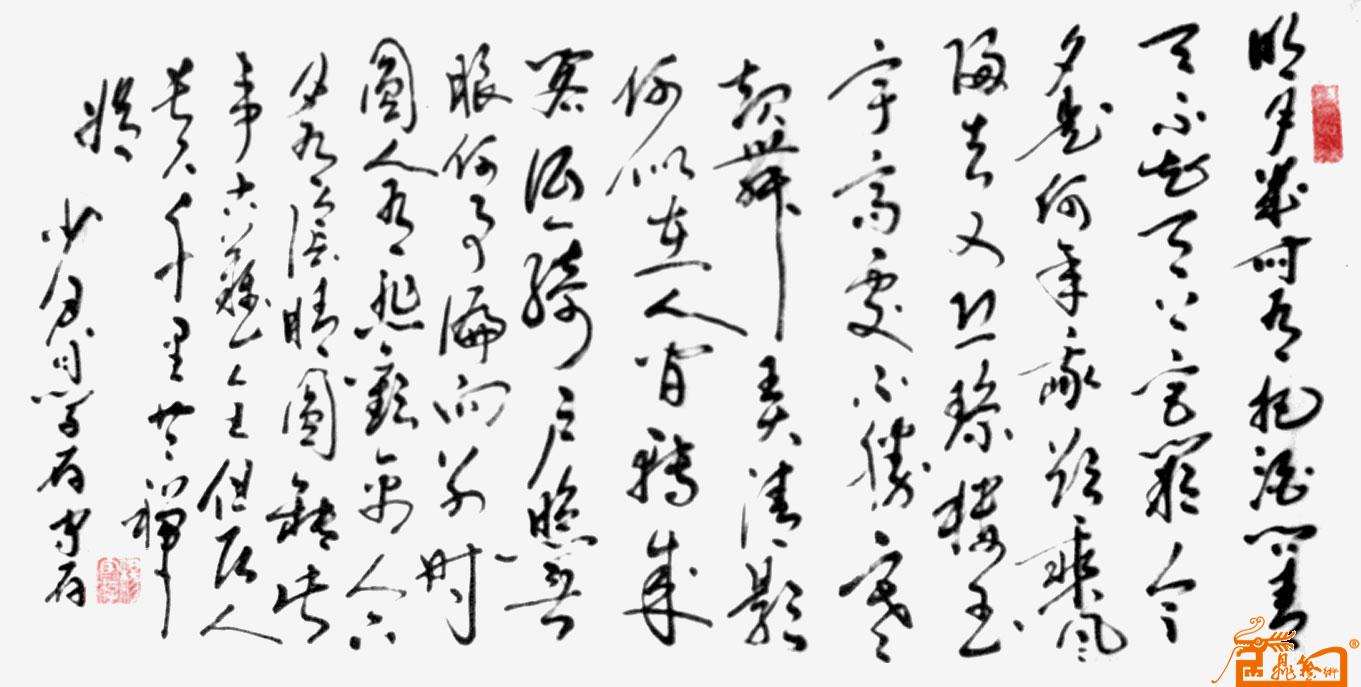 明月幾时有把酒问青
天不知天上宫阙今
夕是何年我欲乘风
归去又恐琼楼玉
宇高处不勝寒
起舞弄清影
何似在人间转朱
阁低绮户照无
眠何事偏向别时
圓人有悲歡离合
月有陰晴圓缺此
事古難全但願人
长久千里共婵
娟